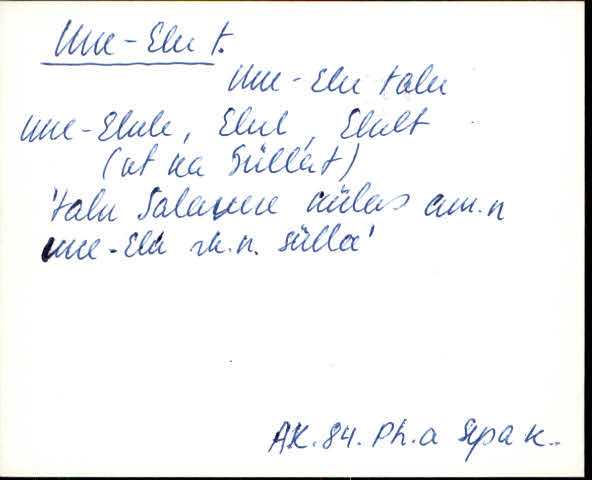 Uue-Elu t.
Uue-Elu talu
Uue-Elule, Elul, Elult
(vt ka Süllat)
'talu Salavere külas am.n
Uue-Elu rk.n. Sülla'
AK. 84. Ph.a Sepa K.